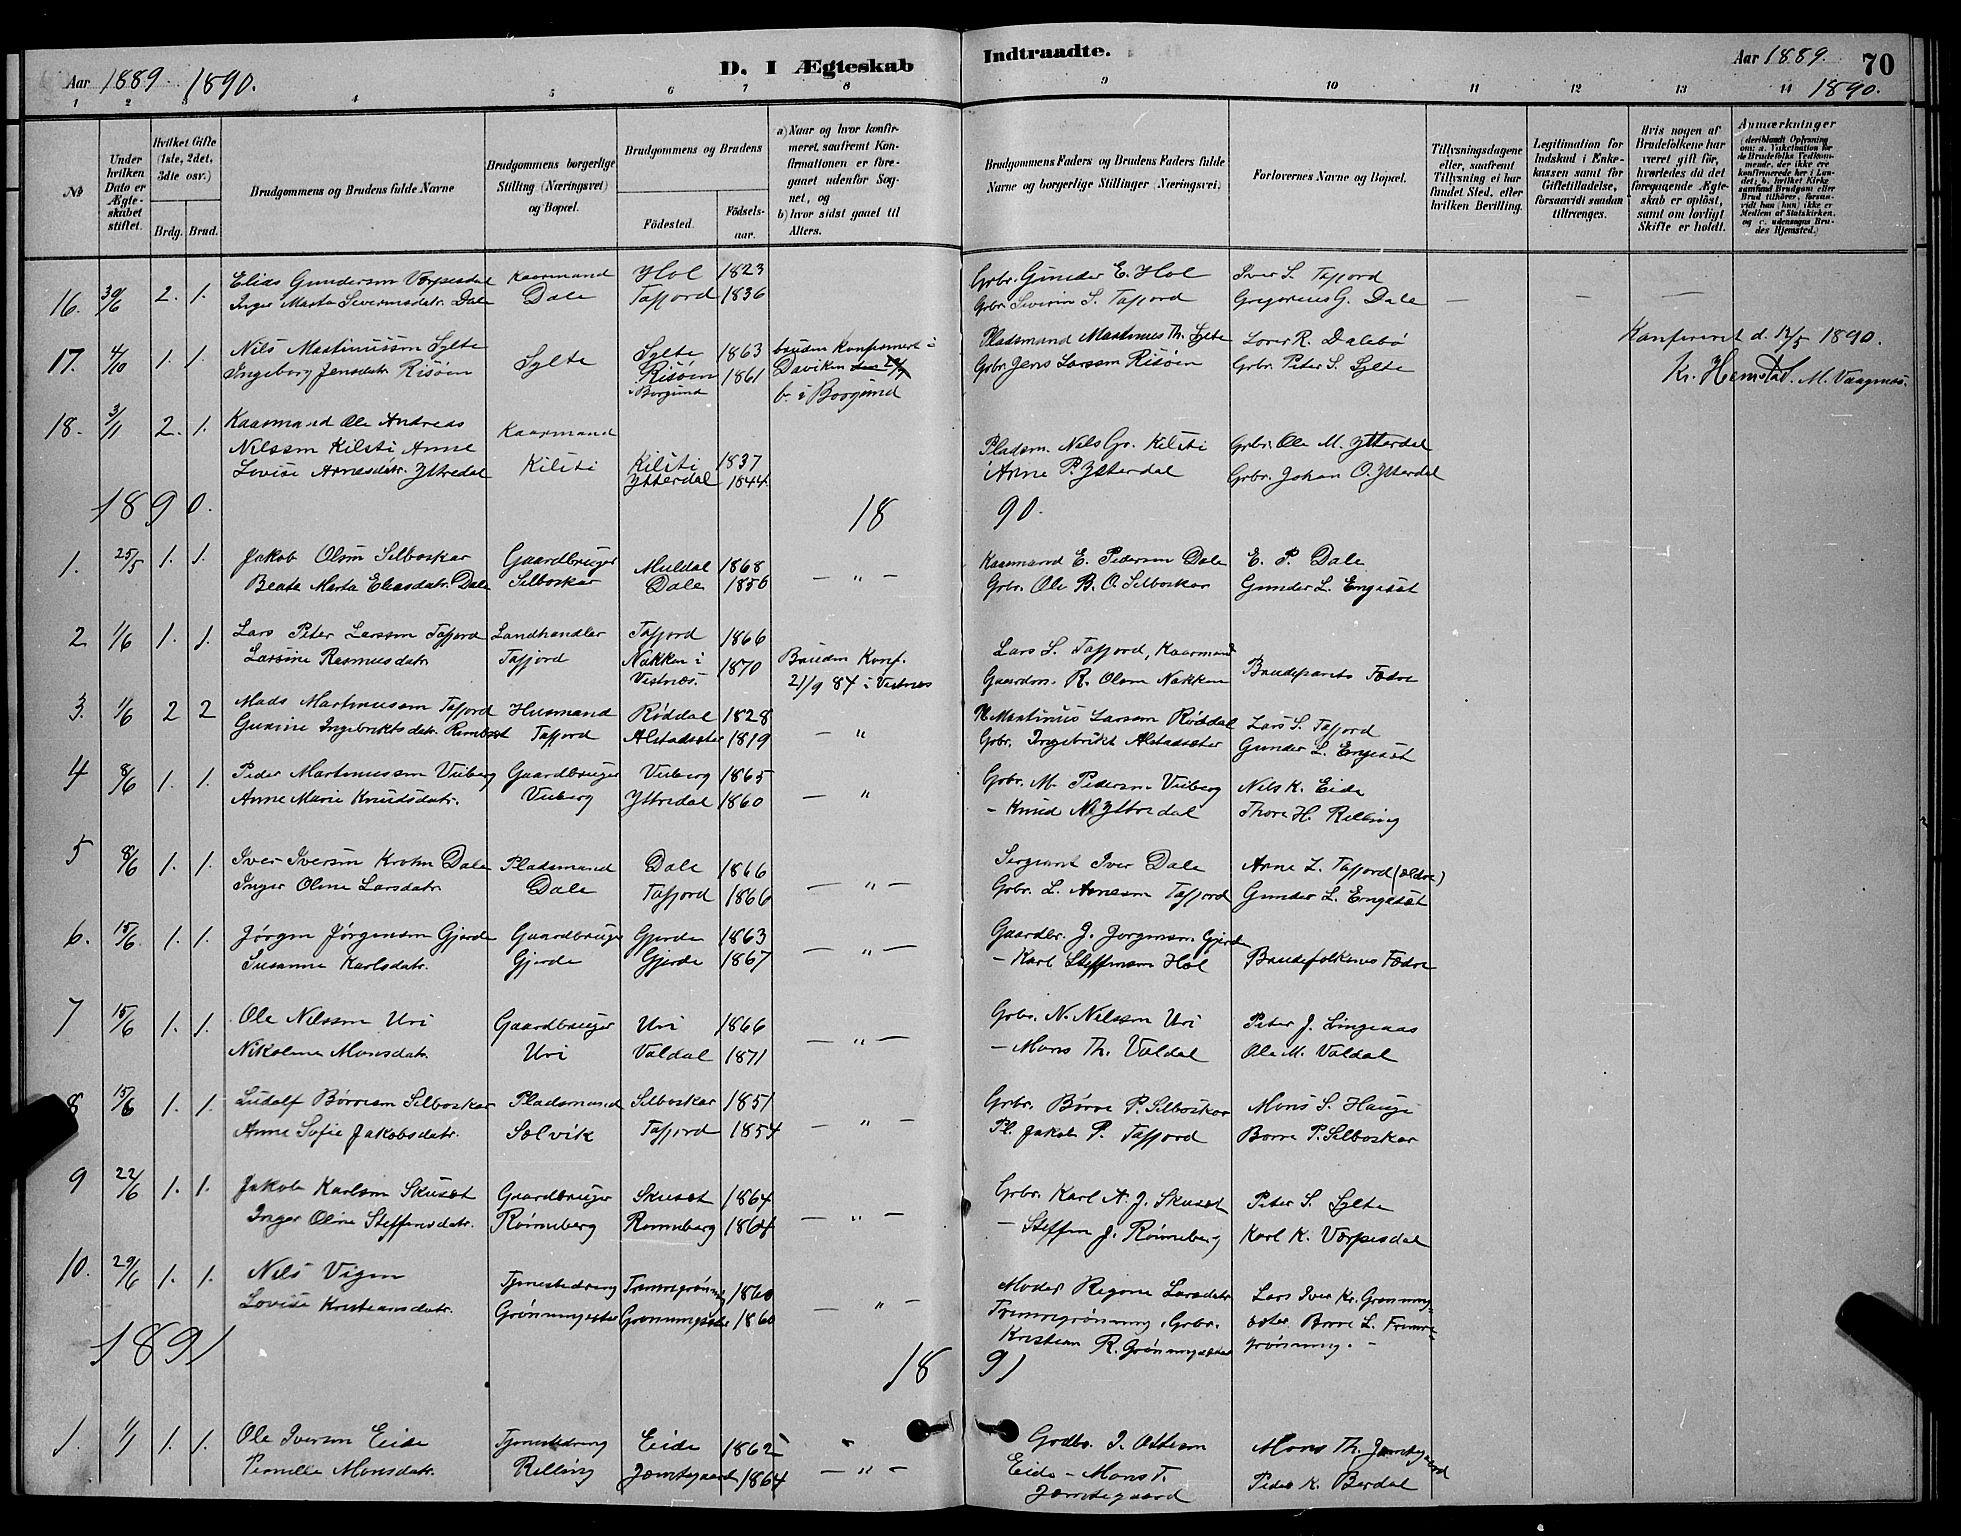 D. I Ægteskab Indtraadte.
Aar 1889. 1890.
Aar 1889. 1890.
70
1 2 3 4 5 6 7 8 9 10 11 12 13 14
No
Under hvilken Dato er Ægteskabet stiftet.
Hvilket Gifte (1ste, 2det, 3die osv.)
Brdg. Brud.
Brudgommens og Brudens fulde Navne
Brudgommens borgerlige Stilling (Næringsvei) og Bopæl.
Brudgommens og Brudens
Fødested.
Fødselsaar.
a) Naar og hvor konfirmeret, saafremt Konfirmationen er foregaaet udenfor Sognet, og
b) hvor sidst gaaet til Alters.
Brudgommens Faders og Brudens Faders fulde Navne og borgerlige Stillinger (Næringsvei)
Forlovernes Navne og Bopæl.
Tillysningsdagene eller, saafremt Tillysning ei har fundet Sted, efter hvilken Bevilling.
Legitimation for Indskud i Enkekassen samt for Giftetilladelse, forsaavidt saadan tiltrænges.
Hvis nogen af Brudefolkene har været gift før, hvorledes da det foregaaende Ægteskab er opløst, samt om lovligt Skifte er holdt.
Anmærkninger
16. 30/6 2. 1. Elias Gundersen Værpesdal Kaarmand Hol 1823 Grbr. Gunder E. Hol Iver S. Tafjord
Inger Marta Severinsdatr. Dale Dale Tafjord 1836 Grbr. Siverin S. Tafjord Gregorius G. Dale — — —
17. 4/10 1. 1 Nils Martinussen Sylte Sylte Sylte 1863 bruden Konfirmert i Pladsmand Martinus Th. Sylte R. Dalebø Konfereret d. 12/5 1890.
Ingeborg Jensdatr. Risøen Risøen 1861 Daviken Grbr. Jens Larssen Risøen Grbr. Peter S. Sylte Kr. Hemstad. M. Vaagnæs.
i Borgund b. i Borgund
18. 3/11 2. 1. Kaarmand Ole Andreas Kaarmand
Nilssen Kilsti Anne Pladsm. Nils Gr. Kilsti Grbr. Ole M. Ytterdal
Lovise Arnesdatr. Yttredal Kilsti Kilsti 1837 Arne P. Ytterdal Grbr. Johan O. Ytterdal
Ytterdal 1844
1890. 18 90.
1. 25/5 1. 1. Jakob Olsen Selboskar Gaardbruger Muldal 1868 Kaarmand E. Pedersen Dale E. P. Dale
Beate Marta Eliasdatr. Dale Selboskar Dale 1856 — „ — Grbr. Ole B. O. Selboskar Gunder L. Engesæt
2 1/6 1. 1. Lars Peter Larssen Tafjord Landhandler Tafjord 1866 Lars S. Tafjord, Kaarmand
Larsine Rasmusdatr. Tafjord Nakken i 1870 Bruden Konf. Gaardbr. R. Olsen Nakken Brudeparets Fædre
Vestnæs. 21/9 84 i Vestnæs
3. 1/6 2 2 Mads Martinussen Tafjord Husmand Røddal 1828 Martinus Larssen Røddal Lars S. Tafjord
Gurine Ingebriktsdatr. Tafjord Alstadsæter 1819 — „ Grbr. Ingebrikt Alstadsæter Gunder L. Engesæt
4 8/6 1. 1. Peder Martinussen Viiberg Gaardbruger Viiberg 1865 Grbr. M. Pedersen Viiberg Nils K. Eide
Anne Marie Knudsdatr. Viiberg Yttredal 1860 — „ — Knud N. Yttredal Thore H. Relling
5 8/6 1. 1. Iver Iversen Krohn Dale Pladsmand Dale 1866 Sergeant Iver Dale Arne L. Tafjord (ældre)
Inger Oline Larsdatr. Dale Tafjord 1866 — „ — Grbr. L. Arnesen Tafjord Gunder L. Engesæt
6. 15/6 1. 1. Jørgen Jørgensen Gjerde Gaardbruger Gjerde 1863 Gaardbr. J. Jørgensen Gjerde
Susanne Karlsdatr. Gjerde Gjerde 1867 — „ — — Karl Steffensen Hol Brudefolkenes Fædre
7 15/6 1. 1. Ole Nilssen Uri Gaardbruger Uri 1866 Grbr. N. Nilssen Uri Peter J. Lingeaas
Nikoline Monsdatr. Uri Valdal 1871 — „ — — Mons Th. Valdal Ole M. Valdal
8 15/6 1. 1. Ludolf Børresen Selboskar Pladsmand Selboskar 1851 Grbr. Børre P. Selboskar Mons S. Hauge
Anne Sofie Jakobsdatr. Solvik Tafjord 1854 — „ — Pl. Jakob P. Tafjord Børre P. Selboskar
9 22/6 1. 1. Jakob Karlsen Skusæt Gaardbruger Skusæt 1864 Grbr. Karl A. J. Skusæt Peter S. Sylte
Inger Oline Steffensdatr. Rønneberg Rønneberg 1864 — „ — — Steffen J. Rønneberg Karl K. Værpesdal
10. 29/6 1. 1. Nils Vigen Tjenestedreng Fremregrønning 1860 Moder Regine Larsdatr. Lars Iver Kr. Grønning-
Lovise Kristiansdatr. Grønningsæter Grønningsæter 1860 — „ — Fremregrønning, Grbr. sæter. Børre L. Fremre-
Kristian R. Grønningsæter grønning. —
1891 18 91
1. 1/1 1. 1. Ole Iversen Eide Tjenestedreng Eide 1862 „ Grdbr. I. Østensen Mons Th. Jemtegaard
Pernille Monsdatr. Relling Jemtegaard 1864 — „ — Eide — Mons T. Peder K. Berdal
Jemtegaard